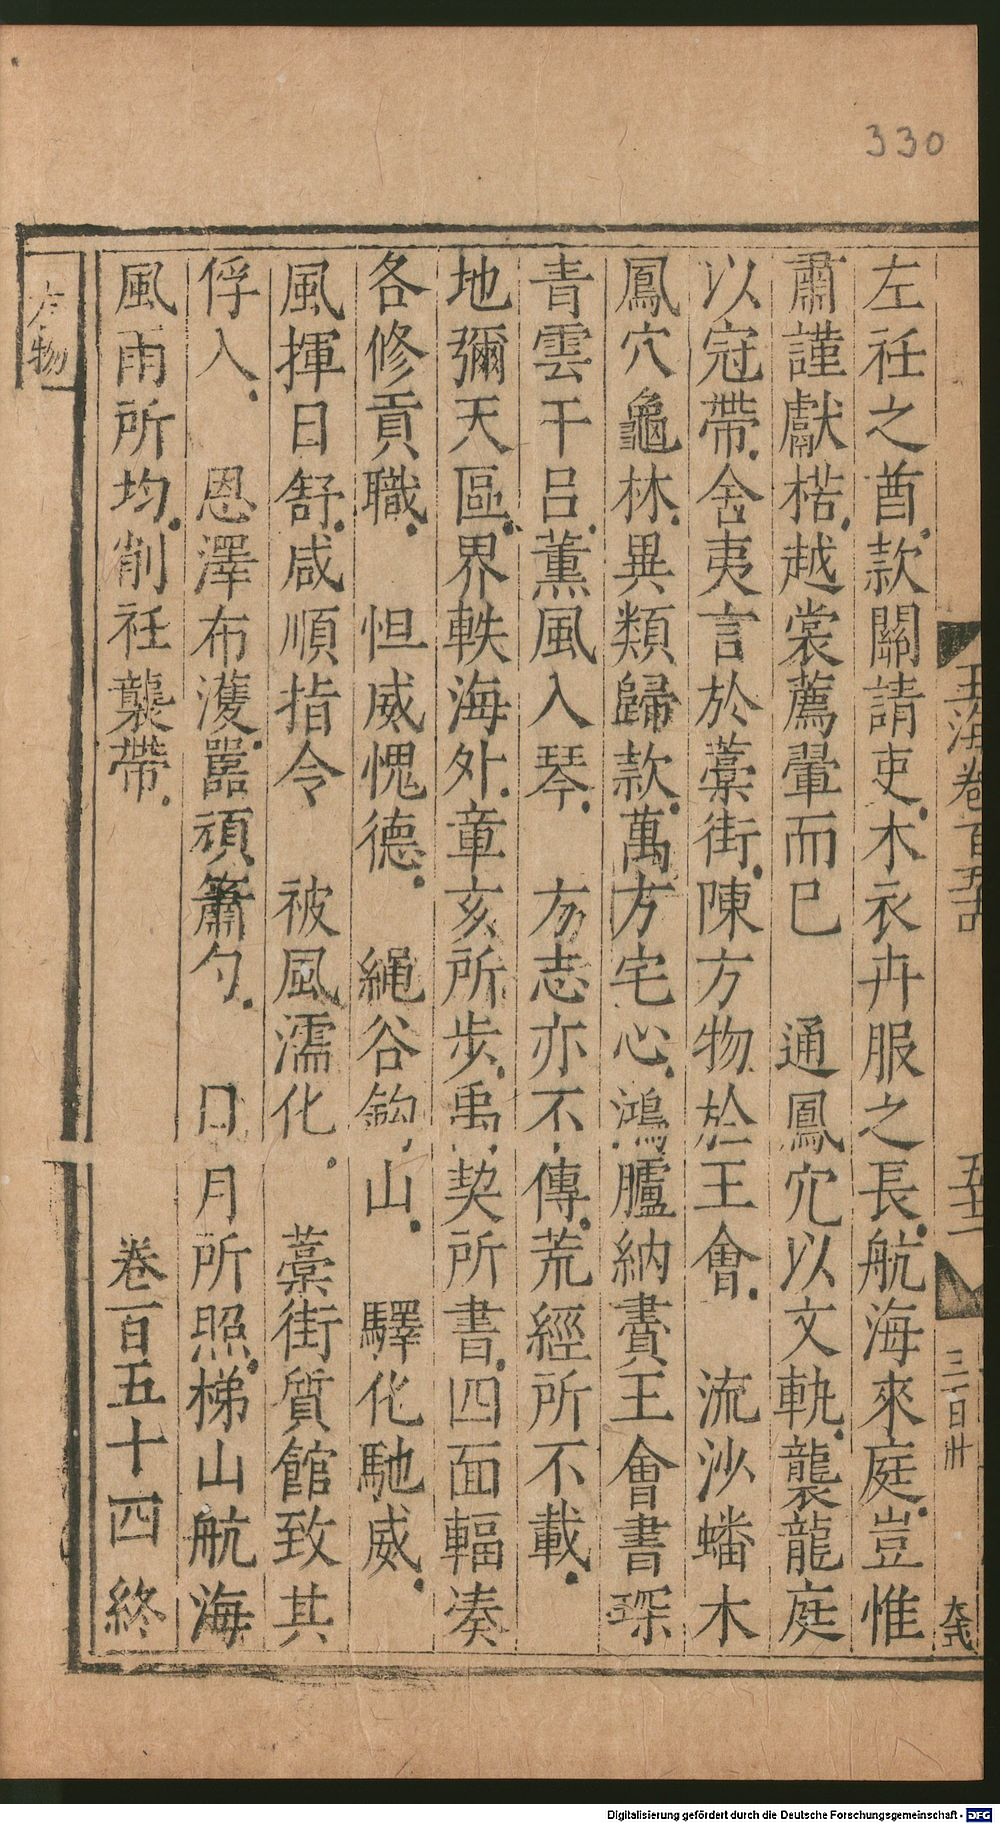 330
玉海卷百五十四
五十二
三一日卅
左衽之酋款關請吏木衣卉服之長航海來庭豈惟
肅謹獻楛越裳薦翬而已　通鳳穴以文軌襲龍庭
以冠帶舍夷言於藁街陳方物於王會　流沙蟠木
鳳穴龜林異類歸款萬方宅心鴻臚納賮王會書琛
青雲干呂薰風入琴　方志亦不傳荒經所不載
地彌天區界軼海外章亥所步禹契所書四面輻湊
各修貢職　怛威愧德　繩谷鈎山　驛化馳威
風揮日舒咸順指令　被風濡化　藁街質館致其
俘入　恩澤布濩嚣頑籥勺　日月所照梯山航海
風雨所均削衽襲帶　　卷百五十四終
方物
Digitalisierung gefördert durch die Deutsche Forschungsgemeinschaft - DFG